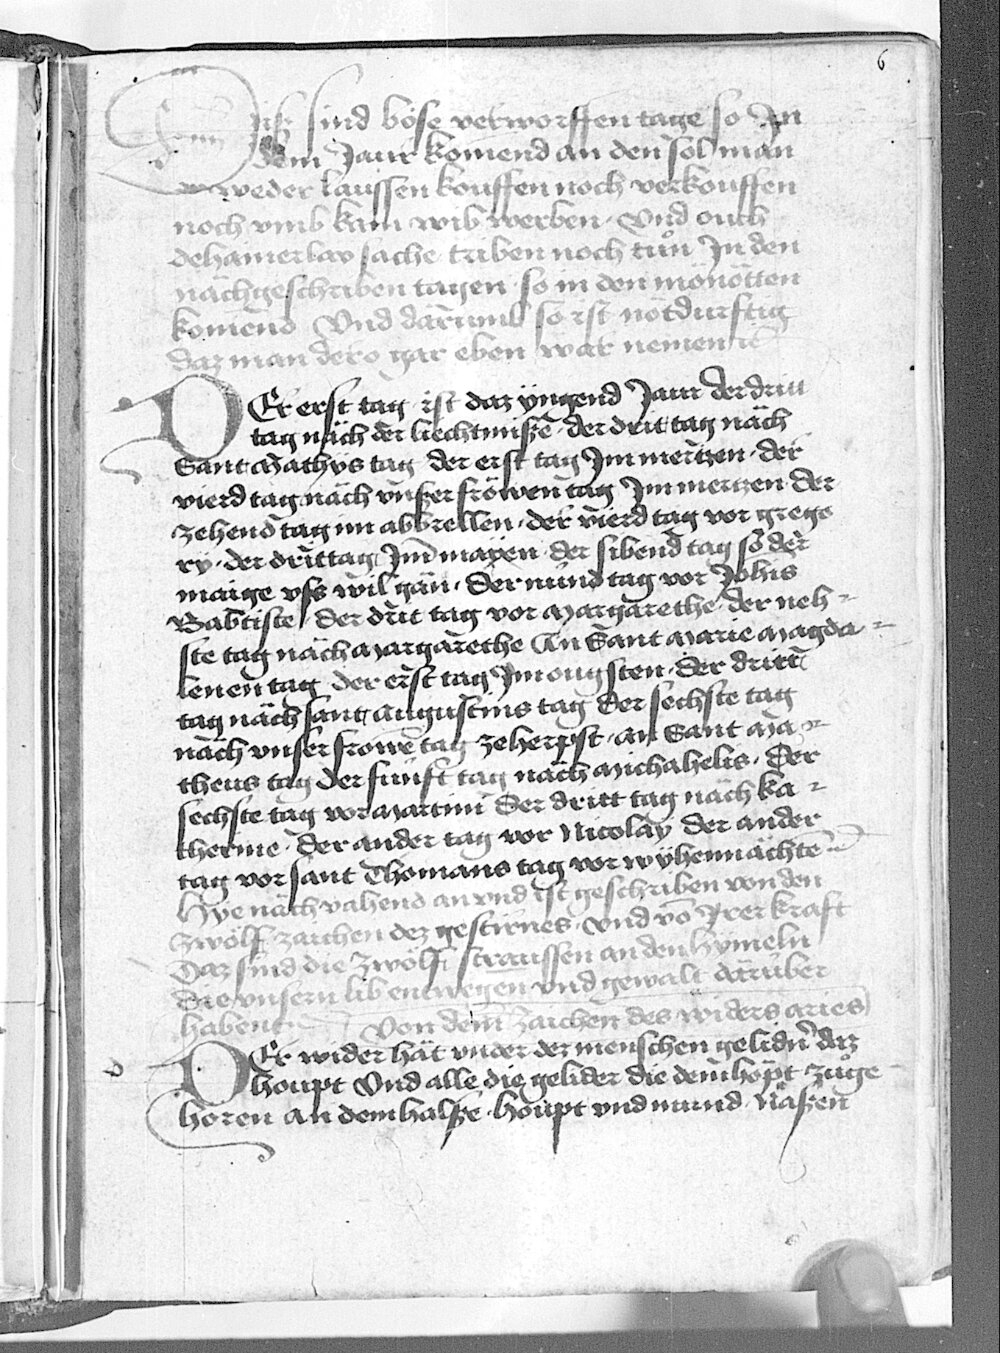 6
Diß sind böse verworffen tage so In
dem Jaur komend an den sol man
weder laussen kouffen noch verkouffen
noch vmb kain wib werben · Vnd ouch
dehainerlay sache triben noch tůn In den
nächgeschriben tagen · so in den monötten
komend Vnd darumb so ist nötdurftig
daz man dero gar eben war nemen
DEr erst tag ist daz yngend Jaur der drit
tag näch der liechtmiße · der drit tag näch
Sant Mathÿs tag der erst tag Im mertzen · der
vierd tag näch vnßer fröwen tag Im mertzen · der
zehend tag im abbrellen · der vierd tag vor grego
ry · der drit tag Im mayen · der sibend tag so der
maige vss wil gän · Der nünd tag vor Johis
Babtiste / der drit tag vor Margarethe · der neh-
ste tag näch Margarethe An Sant Marie Magda-
lenen tag der erst tag Im ougsten · der dritt
tag näch sant Augustins tag Der sechste tag
näch vnser frowe tag ze herpst · an Sant Ma-
theus tag der fünft tag näch Michahelis · Der
sechste tag vor Martini Der dritt tag näch Ka-
therine · Der ander tag vor Nicolay der ander
tag vor sant Thomans tag vor wÿhennächte
Hye näch vahend an vnd ist geschriben von den
zwölf zaichen dez gestirnes · vnd vo Irer kraft
Daz sind die zwölf straussen an den hÿmeln
Die vnsern lib entwegen vnd gewalt darüber
habent Von dem Zaichen des widers aries
DEr wider hät vnder der menschen gelidn daz
houpt Vnd alle die gelider die dem hopt zůge
horen an dem halße · houpt vnd mund · naßen